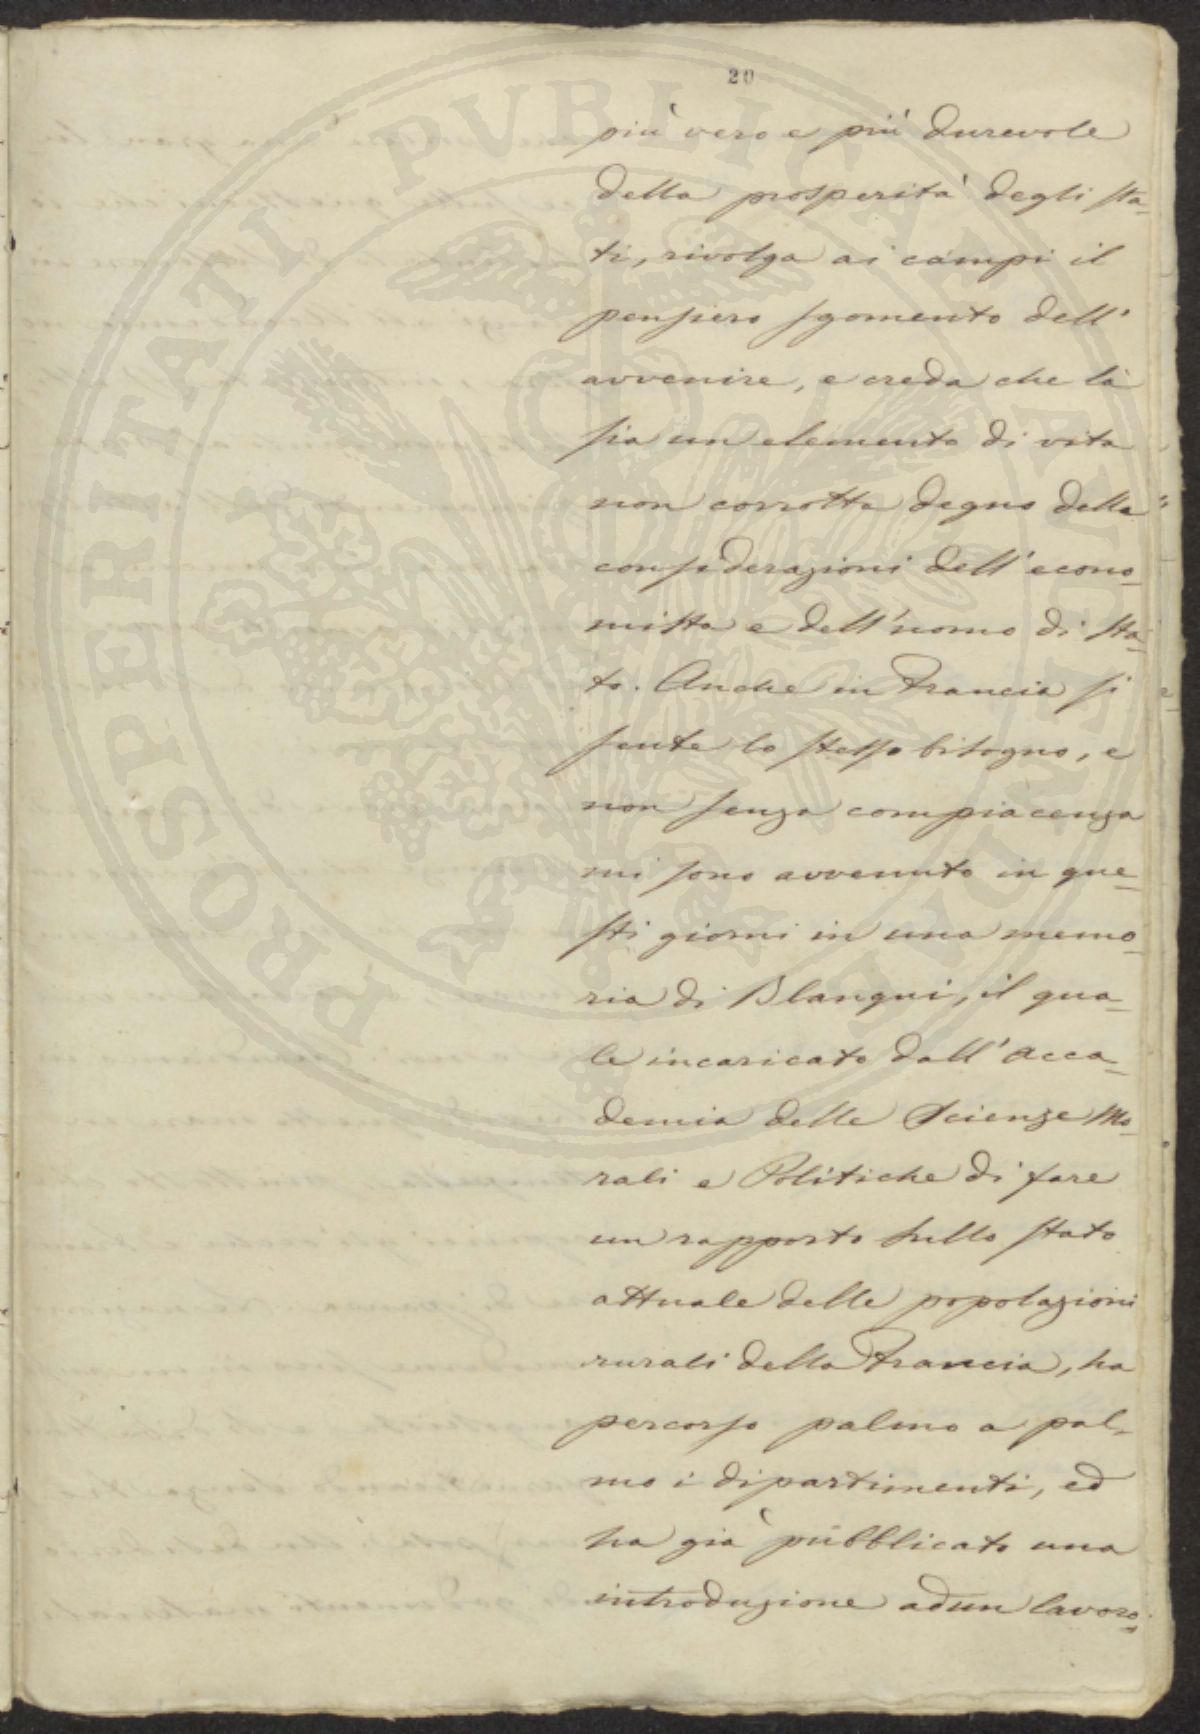 20
più vero e più durevole
della prosperità degli sta-
ti, rivolga ai campi il
pensiero sgomento dell'
avvenire, e creda che là
sia un elemento di vita
non corrotta degno della
considerazioni dell'econo-
mista e dell'uomo di sta-
to. Anche in Francia si
sente lo stesso bisogno, e
non senza compiacenza
mi sono avvenuto in que-
sti giorni in una memo-
ria di Blanqui, il qua-
le incaricato dall'Acca-
demia delle Scienze Mo-
rali e Politiche di fare
un rapporto sullo stato
attuale delle popolazioni
rurali della Francia, ha
percorso palmo a pal-
mo i dipartimenti, ed
ha già pubblicato una
introduzione ad un lavoro
PROSPERITATI PUBLICAE AUGENDAE